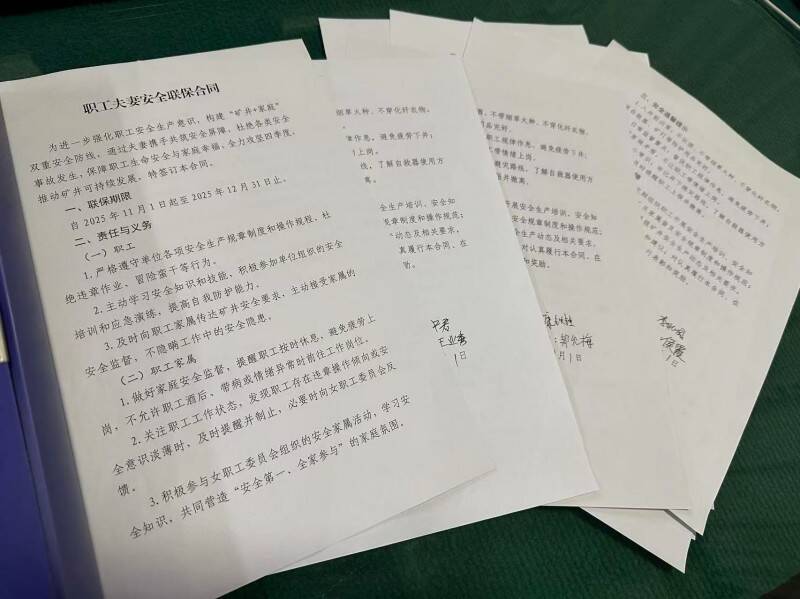 职工夫妻安全联保合同
为进一步强化职工安全生产意识，构建“矿井+家庭”
双重安全防线，通过夫妻携手共筑安全屏障，杜绝各类安全
事故发生，保障职工生命安全与家庭幸福，全力攻坚四季度，
推动矿井可持续发展。特签订本合同。
一、联保期限
自 2025 年 11 月 1 日起至 2025 年 12 月 31 日止。
二、责任与义务
（一）职工
1. 严格遵守单位各项安全生产规章制度和操作规程，杜
绝违章作业、冒险蛮干等行为。
2. 主动学习安全知识和技能，积极参加单位组织的安全
培训和应急演练，提高自我防护能力。
3. 及时向职工家属传达矿井安全要求，主动接受家属的
安全监督，不隐瞒工作中的安全隐患。
（二）职工家属
1. 做好家庭安全监督，提醒职工按时休息，避免疲劳上
岗，不允许职工酒后、带病或情绪异常时前往工作岗位。
2. 关注职工工作状态，发现职工存在违章操作倾向或安
全意识淡薄时，及时提醒并制止，必要时向女职工委员会反
馈。
3. 积极参与女职工委员会组织的安全家属活动，学习安
全知识，共同营造“安全第一、全家参与”的家庭氛围。
烟草火种、不穿化纤衣物。
作息，避免疲劳下井；
上岗。
线，了解自救器使用方
离。
全生产培训、安全知
规章制度和操作规范；
动态及相关要求，
真履行本合同，在
励。
1日
、不带烟草火种、不穿化纤衣物。
品完好。
职工规律作息，避免疲劳下井；
工带情绪上岗。
避灾路线，了解自救器使用方
井撤离。
展安全生产培训、安全知
安全规章制度和操作规范；
生产动态及相关要求，
对认真履行本合同，在
和奖励。
月1日
三、安全温馨提示
了解自救器使用方
安全生产培训、安全知
规章制度和操作规范；
动态及相关要求，
认真履行本合同，在
和奖励。
1日